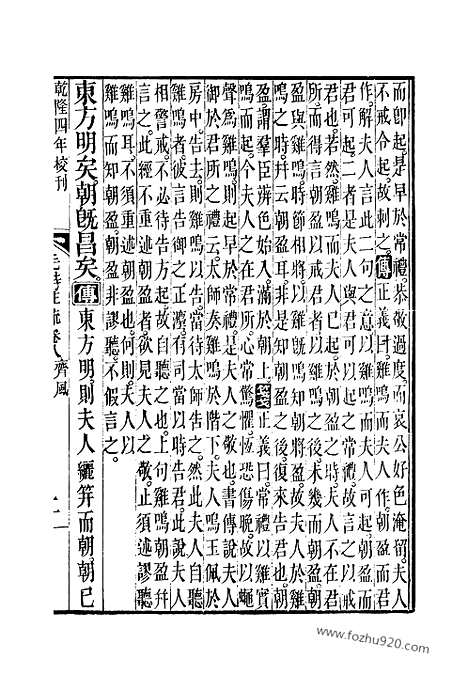 而即起是早於常禮恭敬過度而哀公好色淹留夫人
不戒令起故刺之傳正義曰雞鳴而夫人作朝盈而君
作解夫人言此二句之意以雞鳴而夫人可起朝盈而
君可起二者是夫人與君可以起之常禮故言之以戒
君也若然雞鳴而夫人已起於朝盈之時夫人不在君
所而得言朝盈以戒君者以雞鳴之後未幾而朝盈朝
盈與雞鳴時節相將以雞鳴知朝將盈故夫人於雞
鳴之時并云朝盈耳非是知朝盈之後復來告君也朝
盈謂羣臣辨色始入滿於朝上箋正義曰常禮以雞實
鳴而起今夫人之在君所心常驚懼恆恐傷晚故以蠅
聲爲雞鳴則起早於常禮是夫人之敬也書傳說夫人
御於君所之禮云太師奏雞鳴於階下夫人鳴玉佩於
房中告去則雞鳴以告當待太師告之然此夫人自聽
雞鳴者彼言告御之正禮有司當以時告君此說夫人
相警戒不必待告方起故自聽之也上句雞鳴朝盈并
言之此經不重述朝盈者欲見夫人之敬止須述謬聽
雞鳴耳不須重述朝盈也何則夫人以
雞鳴而知朝盈非謬聽不假言之
東方明矣朝旣昌矣傳東方明則夫人纚笄而朝朝已
乾隆四年校刊
毛詩註疏卷八 齊風
www.fozhu920.com